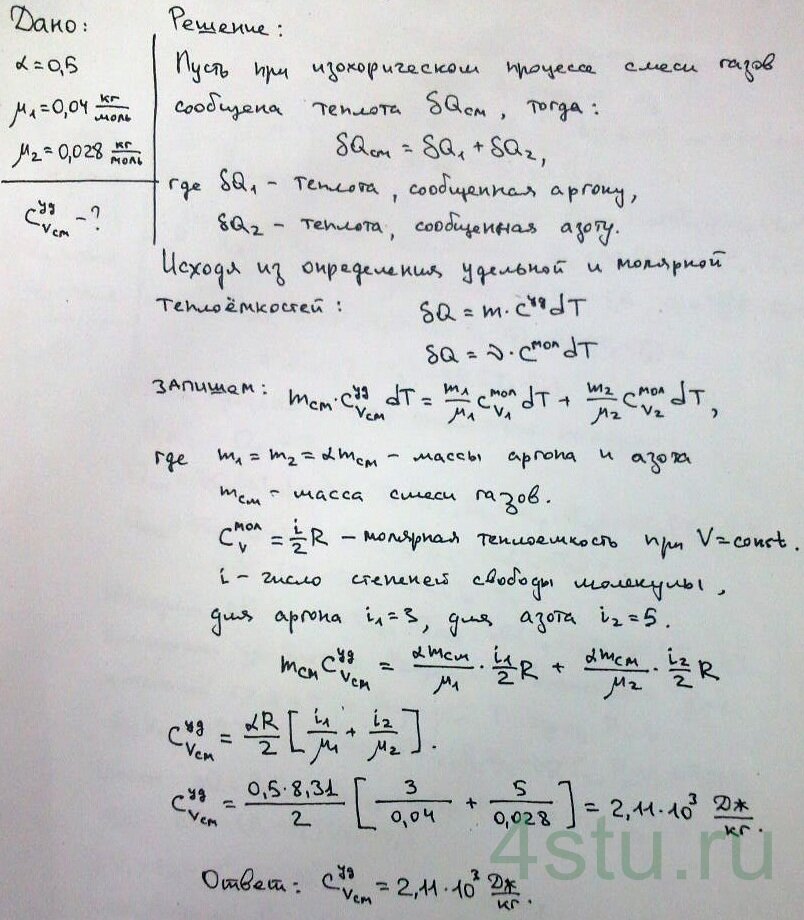 Дано:
α=0,5
μ₁=0,04 кг/моль
μ₂=0,028 кг/моль
C^уд_Vсм - ?
Решение:
Пусть при изохорическом процессе смеси газов
сообщена теплота δQсм, тогда:
δQсм = δQ₁ + δQ₂,
где δQ₁ - теплота, сообщенная аргону,
δQ₂ - теплота, сообщенная азоту.
Исходя из определения удельной и молярной
теплоёмкостей: δQ = m · C^уд dT
δQ = ν · C^мол dT
запишем: mсм · C^уд_Vсм dT = m₁/μ₁ C^мол_V₁ dT + m₂/μ₂ C^мол_V₂ dT,
где m₁ = m₂ = αmсм - массы аргона и азота
mсм - масса смеси газов.
C^мол_V = i/2 R - молярная теплоемкость при V=const.
i - число степеней свободы молекулы,
для аргона i₁=3, для азота i₂=5.
mсм C^уд_Vсм = αmсм/μ₁ · i₁/2 R + αmсм/μ₂ · i₂/2 R
C^уд_Vсм = αR/2 [ i₁/μ₁ + i₂/μ₂ ].
C^уд_Vсм = 0,5·8,31/2 [ 3/0,04 + 5/0,028 ] = 2,11·10³ Дж/кг.
4stu.ru
Ответ: C^уд_Vсм = 2,11·10³ Дж/кг.